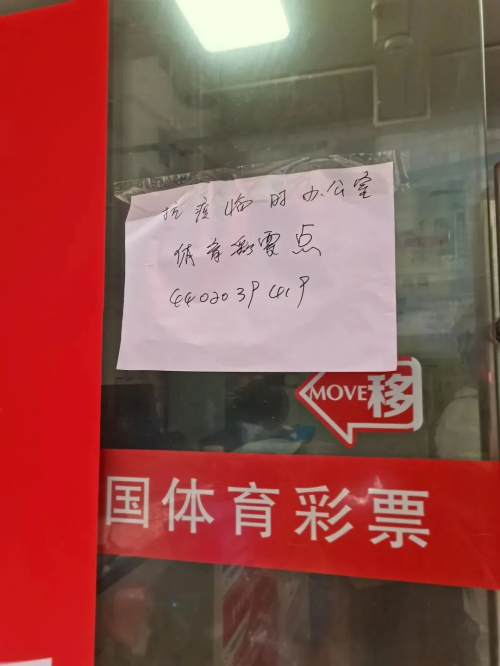 抗疫临时办公室
体育彩票点
4402039419
MOVE移
国体育彩票